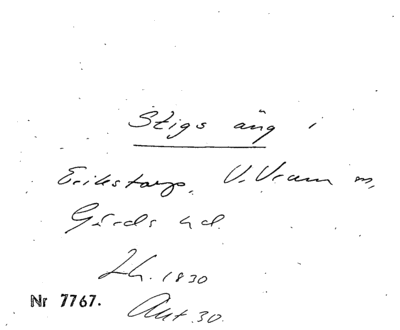 Stigs äng i
Erikstorp, V. Vram sn,
Gärds hd.
Lh. 1830
Nr 7767.
Akt 30.